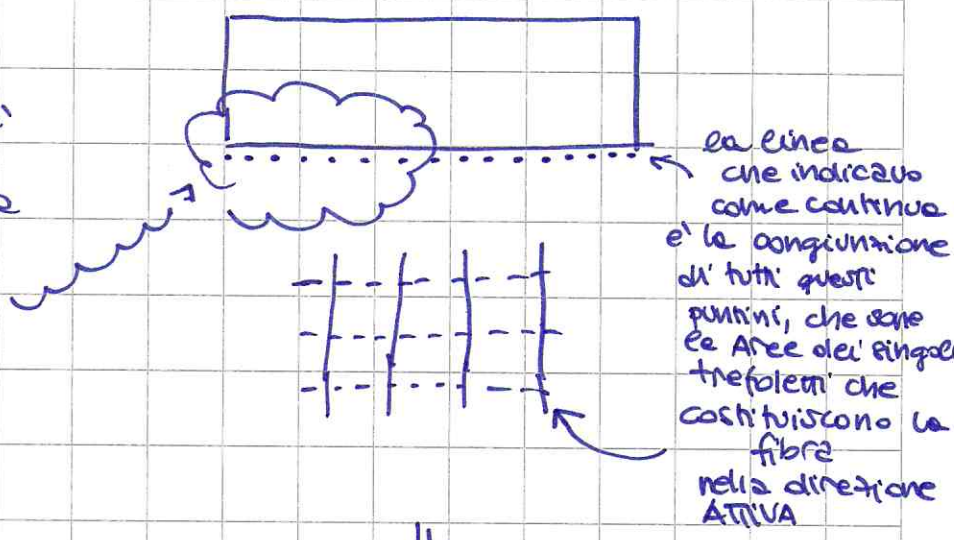 la linea
che indicavo
come continua
e' la congiunzione
di tutti questi
puntini, che sono
le Aree dei singoli
trefoletti che
costituiscono la
fibra
nella direzione
ATTIVA